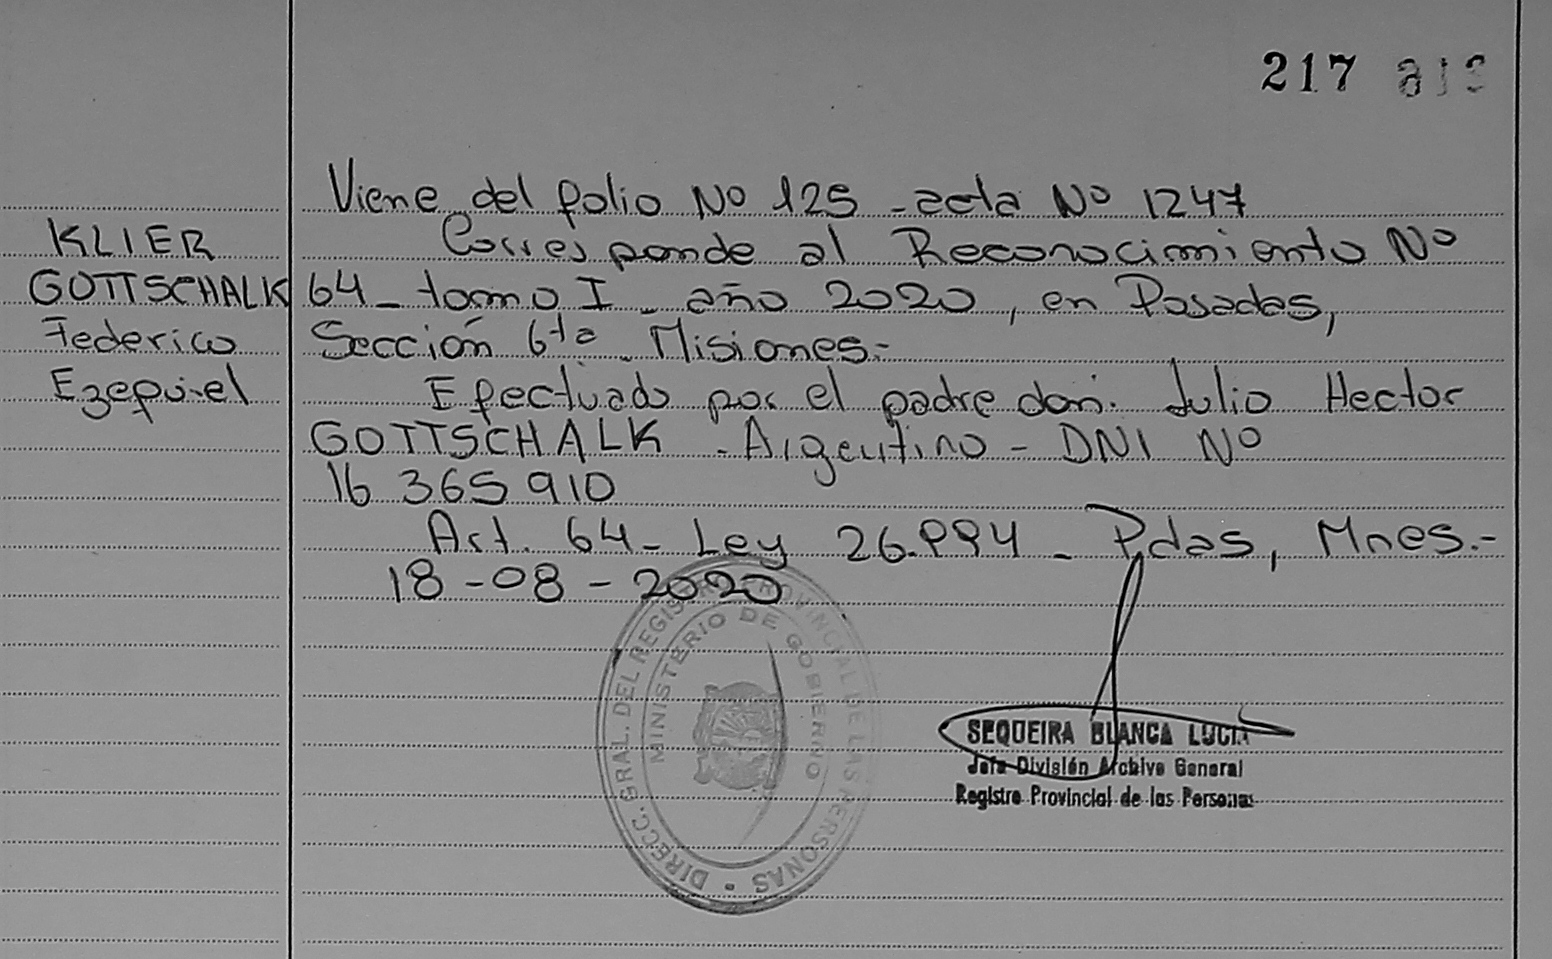 217
Viene del folio Nº 125 - acta Nº 1247
KLIER
GOTTSCHALK
Federico
Ezequiel
Corresponde al Reconocimiento Nº
64 - tomo I - año 2020, en Posadas,
Sección 6ta - Misiones.-
Efectuado por el padre don: Julio Hector
GOTTSCHALK - Argentino - DNI Nº
16 365 910
Art. 64 - Ley 26.994 - Pdas, Mnes.-
18-08-2020
DIRECC. GRAL. DEL REGISTRO PROVINCIAL DE LAS PERSONAS
MINISTERIO DE GOBIERNO
SEQUEIRA BLANCA LUCIA
Jefa División Archivo General
Registro Provincial de las Personas